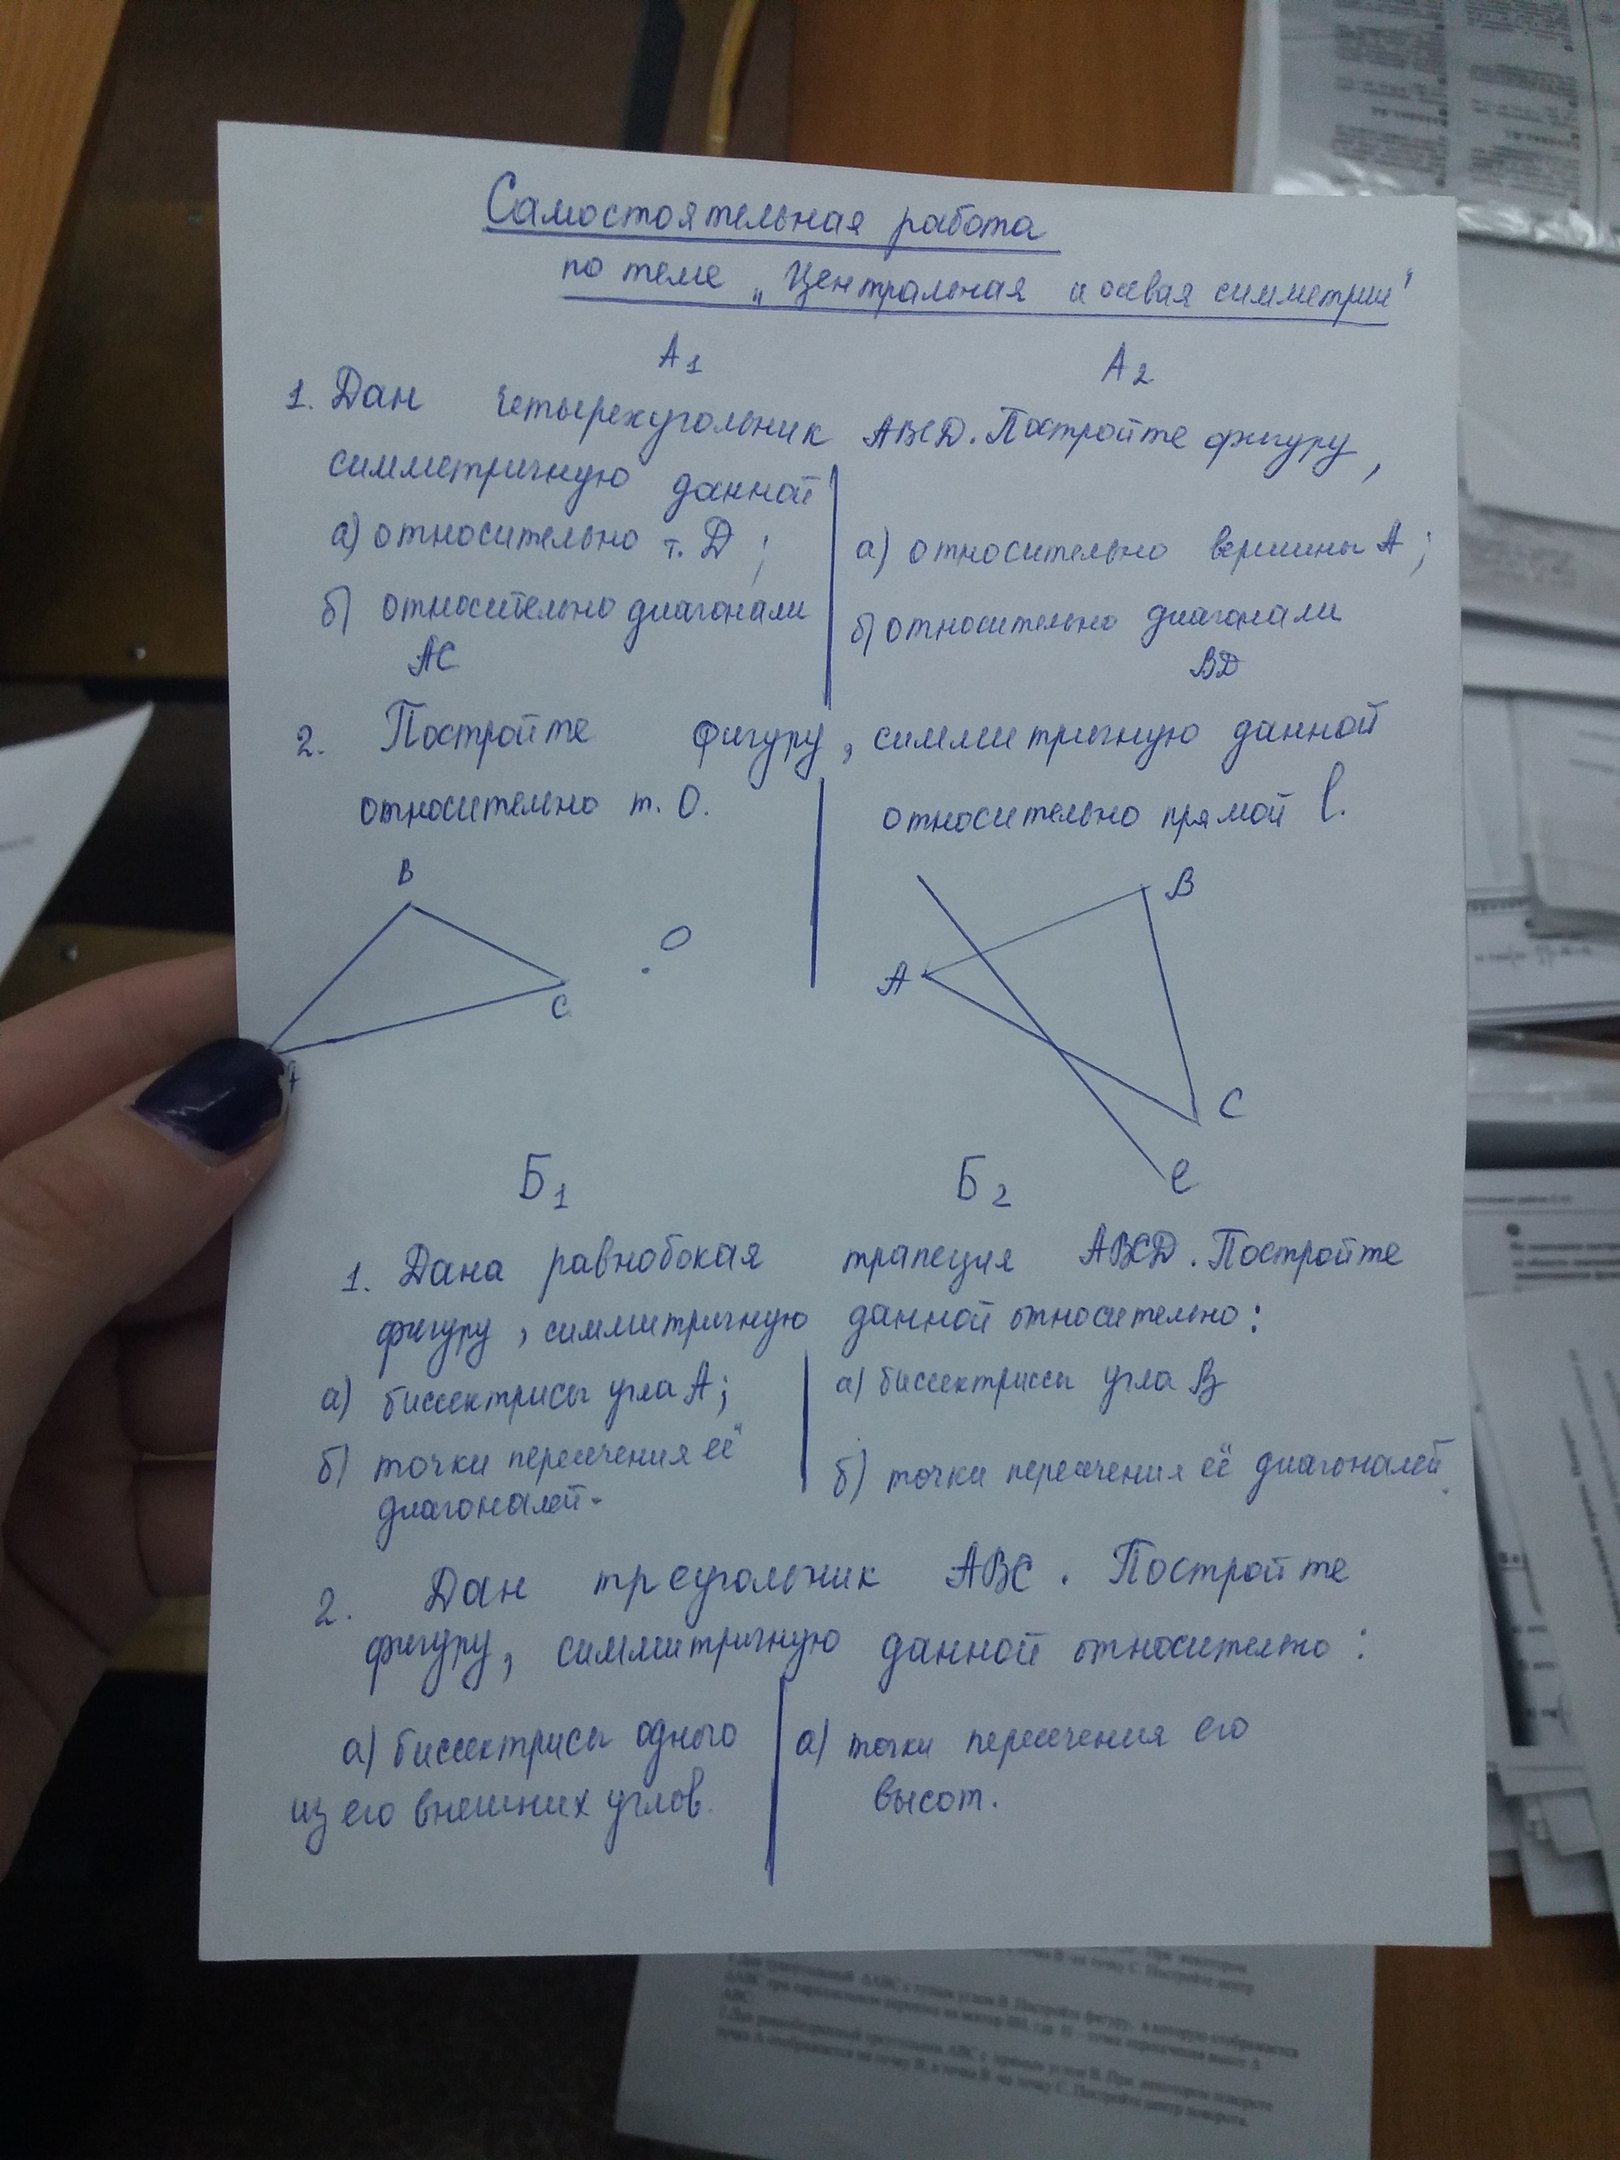 Самостоятельная работа
по теме „Центральная и осевая симметрии"
А1 А2
1. Дан четырехугольник ABCD. Постройте фигуру,
симметричную данной
а) относительно т. D; а) относительно вершины A;
б) относительно диагонали б) относительно диагонали
AC BD
2. Постройте фигуру, симметричную данной
относительно т. O. относительно прямой l.
B B
O
A
C
C
A
Б1 Б2 l
1. Дана равнобокая трапеция ABCD. Постройте
фигуру, симметричную данной относительно:
а) биссектрисы угла A; а) биссектриссы угла B
б) точки пересечения её б) точки пересечения её диагоналей.
диагоналей.
2. Дан треугольник ABC. Постройте
фигуру, симметричную данной относительно:
а) биссектрисы одного а) точки пересечения его
из его внешних углов. высот.